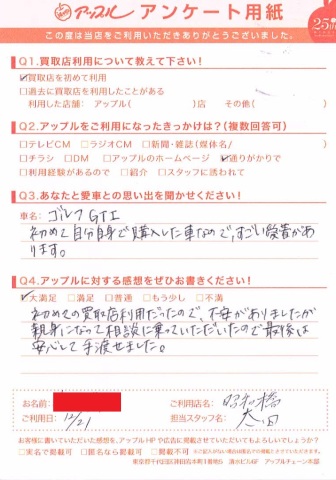 アップル アンケート用紙
25th
この度は当店をご利用いただきありがとうございました。
Q1.買取店利用について教えて下さい!
☑買取店を初めて利用
□過去に買取店を利用したことがある
利用した店舗: アップル( )店 その他( )
Q2.アップルをご利用になったきっかけは?(複数回答可)
□テレビCM □ラジオCM □新聞・雑誌(媒体名/ )
□チラシ □DM □アップルのホームページ ☑通りがかりで
□利用経験があるので □紹介 □スタッフに誘われて
Q3.あなたと愛車との思い出を聞かせください!
車名: ゴルフGTI
初めて自分自身で購入した車なので、すごい愛着があ
ります。
Q4.アップルに対する感想をぜひお書きください!
☑大満足 □満足 □普通 □もう少し □不満
初めての買取店利用だったので、不安がありましたが
親身になって相談に乗っていただいたので最後は
安心して手渡せました。
お名前:
ご利用店名: 昭和橋
ご利用日: 12/21
担当スタッフ名: 太田
お客様に書いていただいた感想を、アップルHPや広告に掲載させていただいてもよろしいでしょうか?
□実名で掲載可 □匿名なら掲載可 □掲載不可
アップルチェーン本部